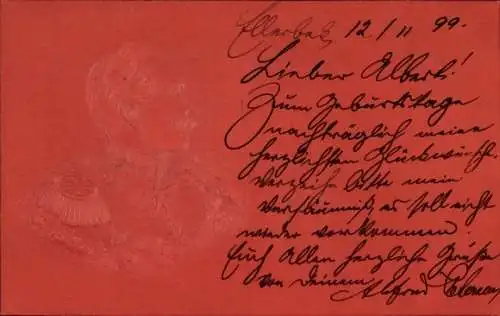 Ellerbek, 12/11 99.
Lieber Albert!
Zum Geburtstage
nachträglich meine
herzlichsten Glückwünsche
Verzeihe bitte mein
Versäumniß, es soll nicht
wieder vorkommen.
Euch Allen herzliche Grüße
von Deinem Alfred